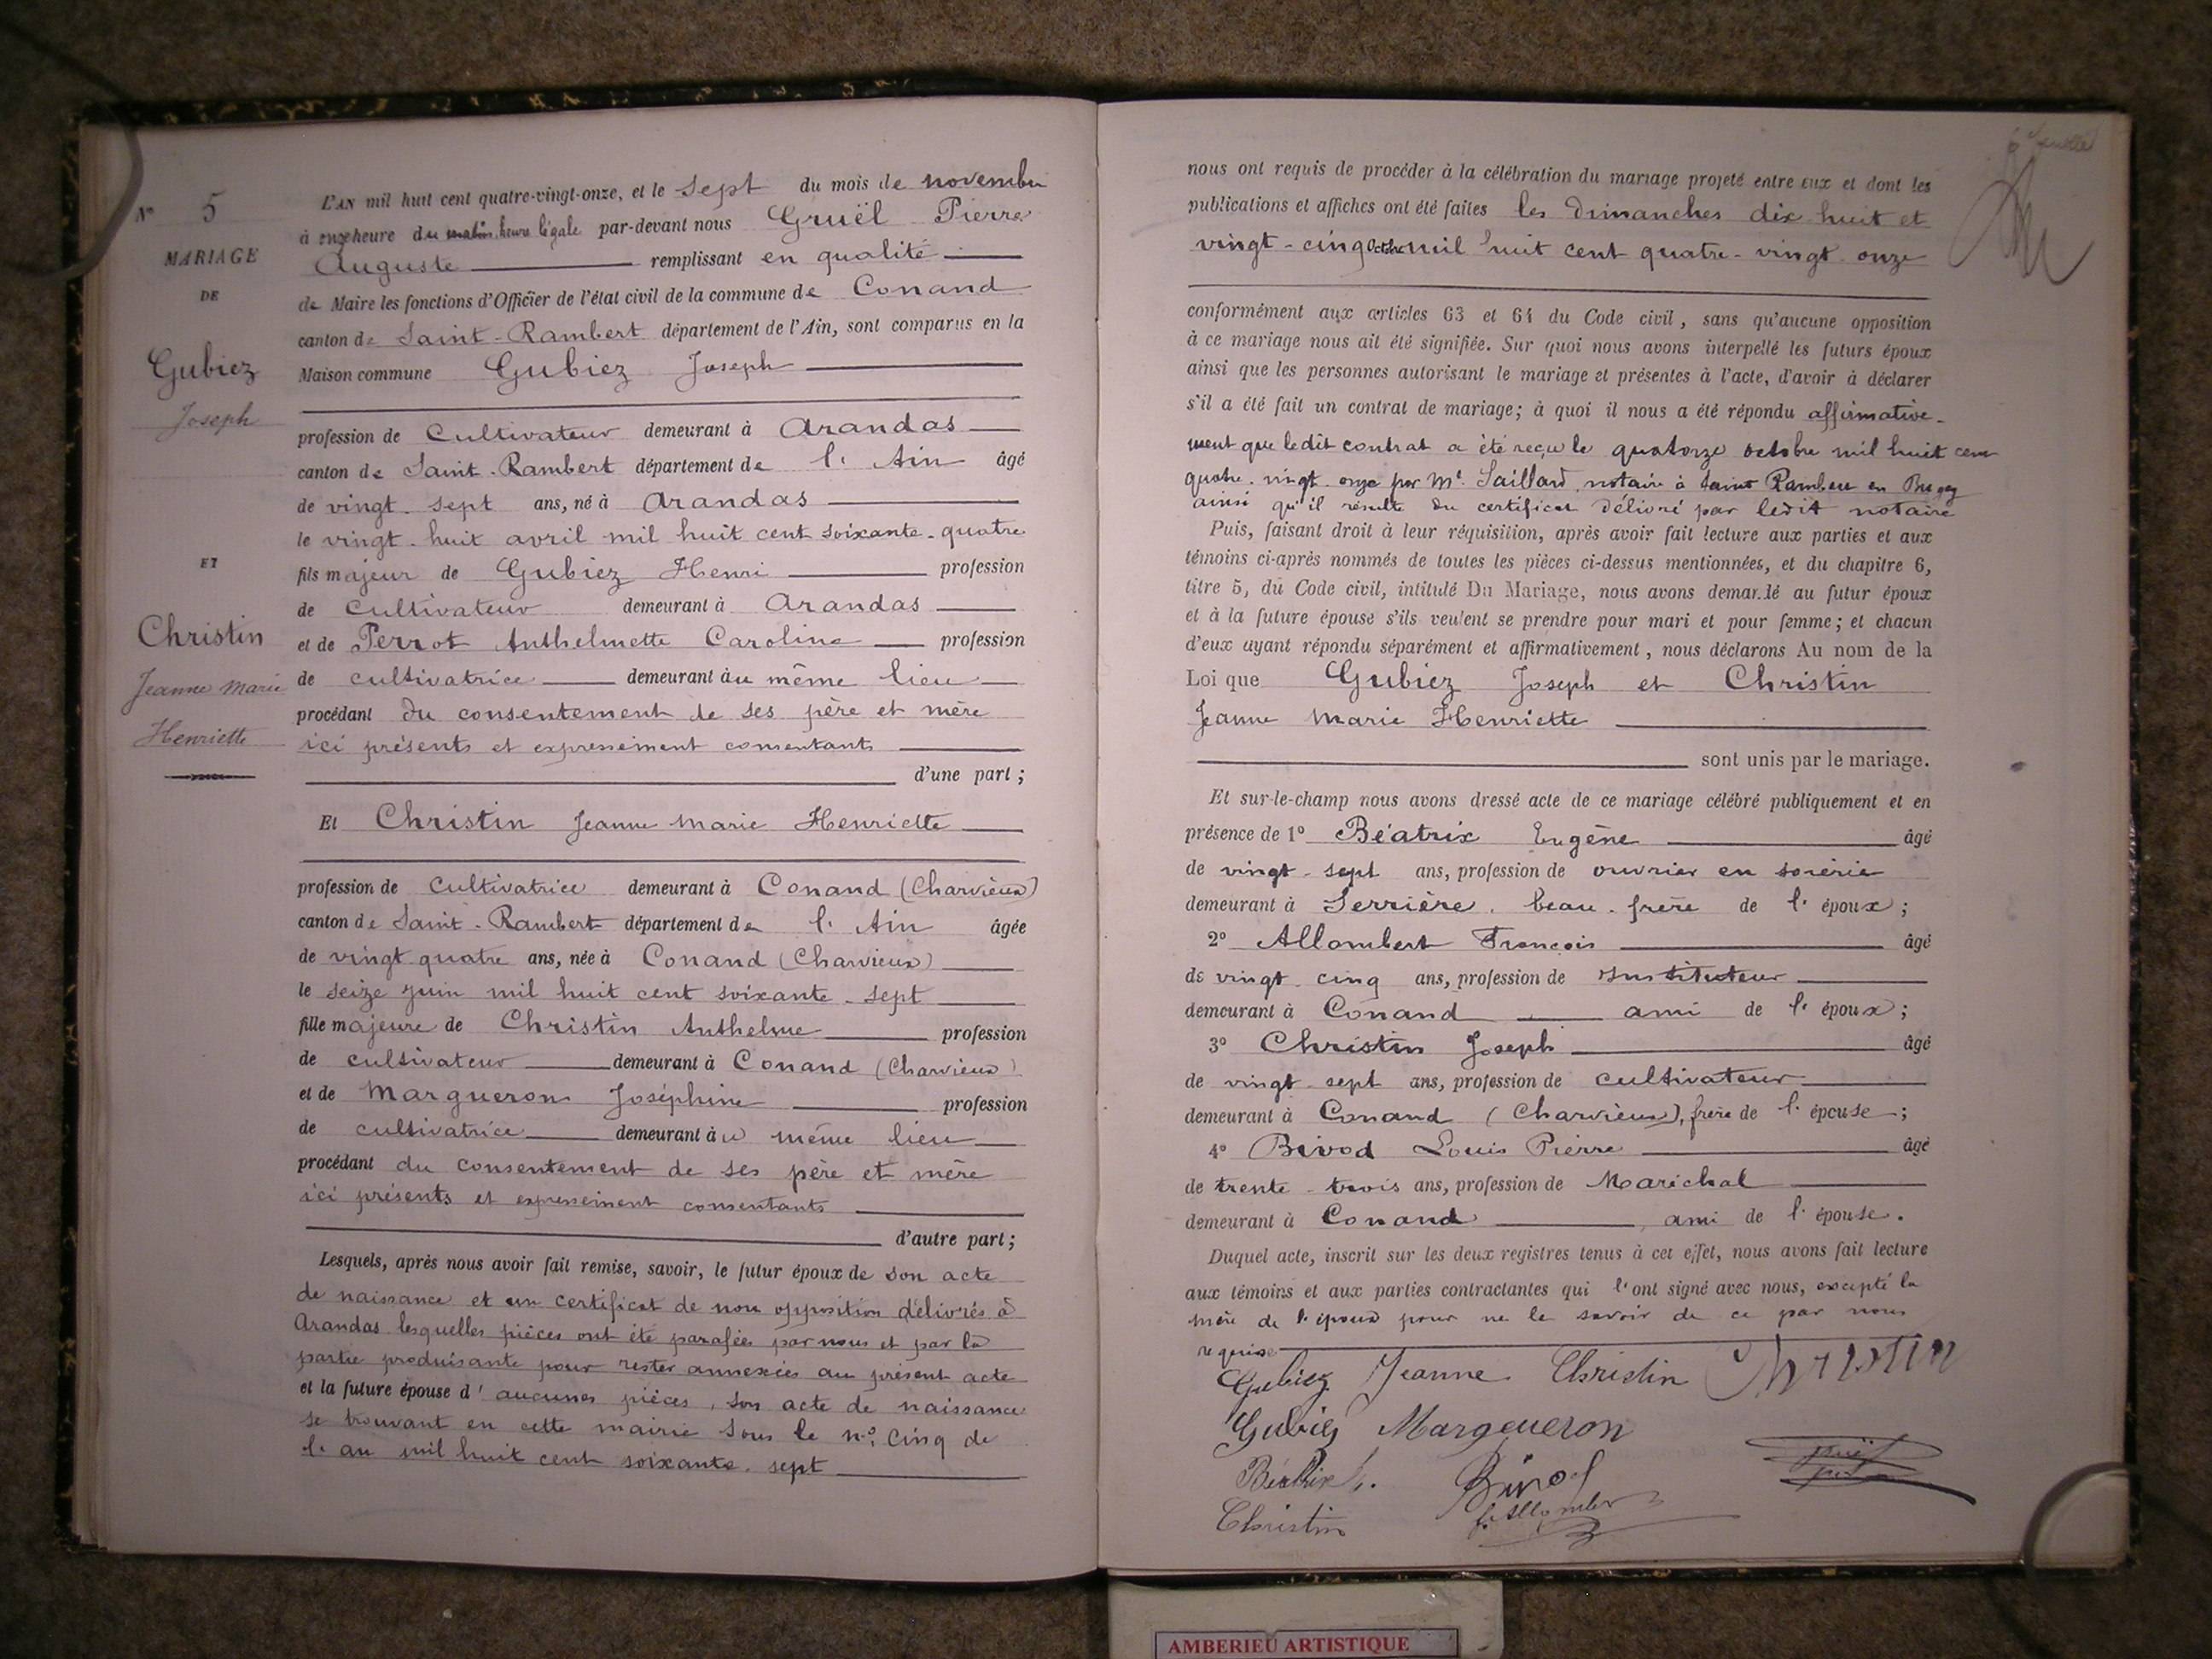 N° 5
MARIAGE
DE
Gubiez
Joseph
ET
Christin
Jeanne Marie
Henriette
L'AN mil huit cent quatre-vingt-onze, et le sept du mois de novembre
à onze heure du matin heure légale par-devant nous Gruël Pierre
Auguste remplissant en qualité
de Maire les fonctions d'Officier de l'état civil de la commune de Conand
canton de Saint-Rambert département de l'Ain, sont comparus en la
Maison commune Gubiez Joseph
profession de Cultivateur demeurant à Arandas
canton de Saint-Rambert département de l'Ain âgé
de vingt-sept ans, né à Arandas
le vingt-huit avril mil huit cent soixante-quatre
fils majeur de Gubiez Henri profession
de cultivateur demeurant à Arandas
et de Perrot Anthelmette Caroline profession
de cultivatrice demeurant au même lieu
procédant du consentement de ses père et mère
ici présents et expressément consentants
d'une part;
Et Christin Jeanne Marie Henriette
profession de cultivatrice demeurant à Conand (Charvieux)
canton de Saint-Rambert département de l'Ain âgée
de vingt quatre ans, née à Conand (Charvieux)
le seize juin mil huit cent soixante-sept
fille majeure de Christin Anthelme profession
de cultivateur demeurant à Conand (Charvieux)
et de Margueron Joséphine profession
de cultivatrice demeurant au même lieu
procédant du consentement de ses père et mère
ici présents et expressément consentants
d'autre part;
Lesquels, après nous avoir fait remise, savoir, le futur époux de son acte
de naissance et un certificat de non opposition délivrés à
Arandas lesquelles pièces ont été parafées par nous et par la
partie produisante pour rester annexées au présent acte
et la future épouse d'aucunes pièces, son acte de naissance
se trouvant en cette mairie sous le n° cinq de
l'an mil huit cent soixante-sept
nous ont requis de procéder à la célébration du mariage projeté entre eux et dont les
publications et affiches ont été faites les dimanches dix huit et
vingt-cinq octobre mil huit cent quatre-vingt onze
conformément aux articles 63 et 64 du Code civil, sans qu'aucune opposition
à ce mariage nous ait été signifiée. Sur quoi nous avons interpellé les futurs époux
ainsi que les personnes autorisant le mariage et présentes à l'acte, d'avoir à déclarer
s'il a été fait un contrat de mariage; à quoi il nous a été répondu affirmative-
ment que ledit contrat a été reçu le quatorze octobre mil huit cent
quatre-vingt-onze par Me Saillard notaire à Saint Rambert en Bugey
ainsi qu'il résulte du certificat délivré par ledit notaire
Puis, faisant droit à leur réquisition, après avoir fait lecture aux parties et aux
témoins ci-après nommés de toutes les pièces ci-dessus mentionnées, et du chapitre 6,
titre 5, du Code civil, intitulé Du Mariage, nous avons demandé au futur époux
et à la future épouse s'ils veulent se prendre pour mari et pour femme; et chacun
d'eux ayant répondu séparément et affirmativement, nous déclarons Au nom de la
Loi que Gubiez Joseph et Christin
Jeanne Marie Henriette
sont unis par le mariage.
Et sur-le-champ nous avons dressé acte de ce mariage célébré publiquement et en
présence de 1° Béatrix Eugène âgé
de vingt-sept ans, profession de ouvrier en soierie
demeurant à Serrière, beau-frère de l'époux;
2° Allombert François âgé
de vingt-cinq ans, profession de Instituteur
demeurant à Conand ami de l'époux;
3° Christin Joseph âgé
de vingt-sept ans, profession de cultivateur
demeurant à Conand (Charvieux), frère de l'épouse;
4° Bivod Louis Pierre âgé
de trente-trois ans, profession de Maréchal
demeurant à Conand, ami de l'épouse.
Duquel acte, inscrit sur les deux registres tenus à cet effet, nous avons fait lecture
aux témoins et aux parties contractantes qui l'ont signé avec nous, excepté la
mère de l'époux pour ne le savoir de ce par nous
requise
Gubiez Jeanne Christin Christin
Gubiez Margeueron
Béatrix Bivod
Christin f. Allombert
AMBERIEU ARTISTIQUE